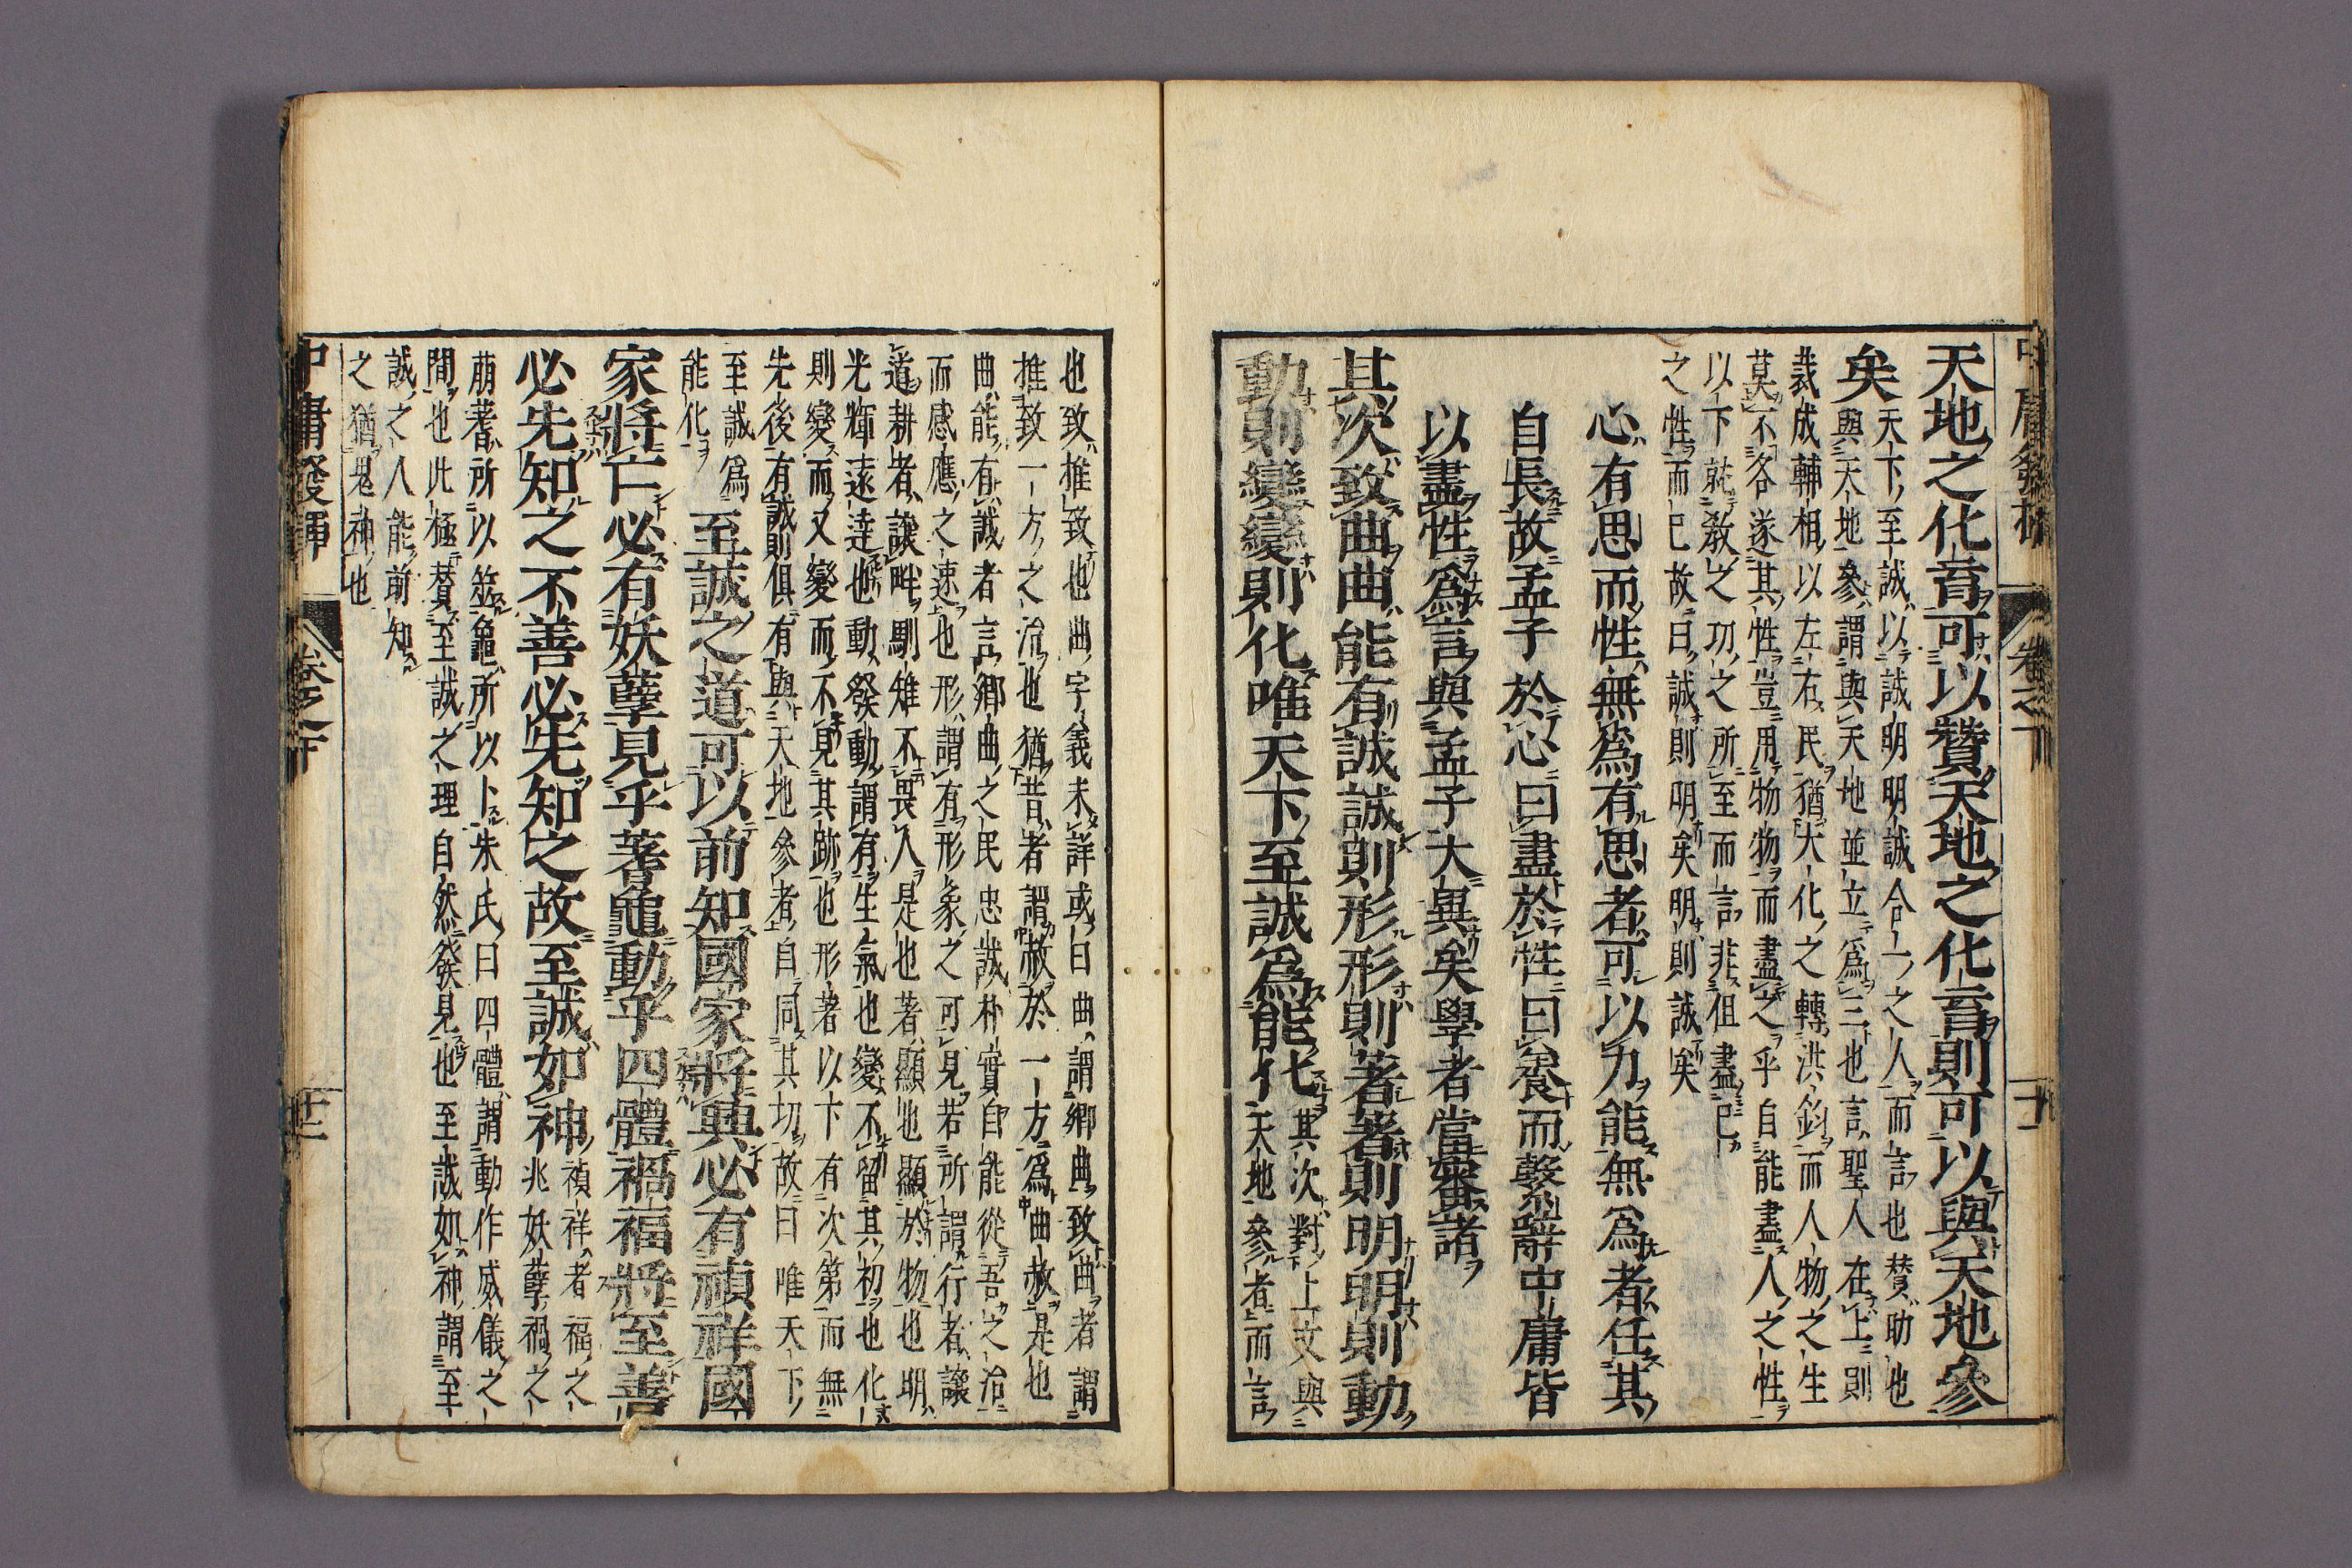 天地之化育可以贊天地之化育則可以與天地參
矣
天下至誠以誠明明誠合一之人而言也贊助也
與天地參謂與天地並立爲三也言聖人在上則
裁成輔相以左右民猶大化之轉洪鈞而人物之生
莫不各遂其性豈用物物而盡之乎自能盡人之性
以下就敎之功之所至而言非但盡己
之性而已故曰誠則明矣明則誠矣
心有思而性無爲有思者可以力能無爲者任其
自長故孟子於心曰盡於性曰養而繫辭中庸皆
以盡性爲言與孟子大異矣學者當審諸
其次致曲曲能有誠誠則形形則著著則明明則動
動則變變則化唯天下至誠爲能化
其次對上文與
天地參者而言
也致推致也曲字義未詳或曰曲謂鄉曲致曲者謂
推致一方之治也猶昔者謂赦於一方爲曲赦是也
曲能有誠者言鄉曲之民忠誠朴實自能從吾之治
而感應之速也形謂有形象之可見若所謂行者讓
道耕者讓畔馴雉不畏人是也著顯也顯於物也明
光輝遠達也動發動謂有生氣也變不留其初也化
則變而又變而不見其跡也形著以下有次第而無
先後有誠則俱有與天地參者自同其切故曰唯天下
至誠爲
能化
至誠之道可以前知國家將興必有禎祥國
家將亡必有妖孽見乎蓍龜動乎四體禍福將至善
必先知之不善必先知之故至誠如神
禎祥者福之
兆妖孽禍之
萠蓍所以筮龜所以卜朱氏曰四體謂動作威儀之
間也此極贊至誠之理自然發見也至誠如神謂至
誠之人能前知
之猶鬼神也
中庸發揮
卷之下
十二